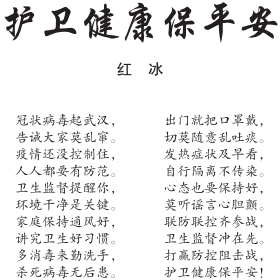 护卫健康保平安
红 冰
冠状病毒起武汉，
告诫大家莫乱窜。
疫情还没控制住，
人人都要有防范。
卫生监督提醒你，
环境干净是关键。
家庭保持通风好，
讲究卫生好习惯。
多消毒来勤洗手，
杀死病毒无后患。
出门就把口罩戴，
切莫随意乱吐痰。
发热症状及早看，
自行隔离不传染。
心态也要保持好，
莫听谣言心胆颤。
联防联控齐参战，
卫生监督冲在先。
打赢防控阻击战，
护卫健康保平安！